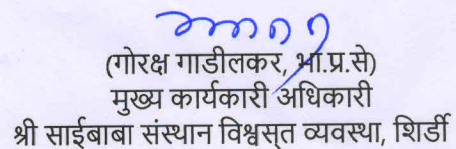 (गोरक्ष गाडीलकर, भा.प्र.से)
मुख्य कार्यकारी अधिकारी
श्री साईबाबा संस्थान विश्वस्त व्यवस्था, शिर्डी